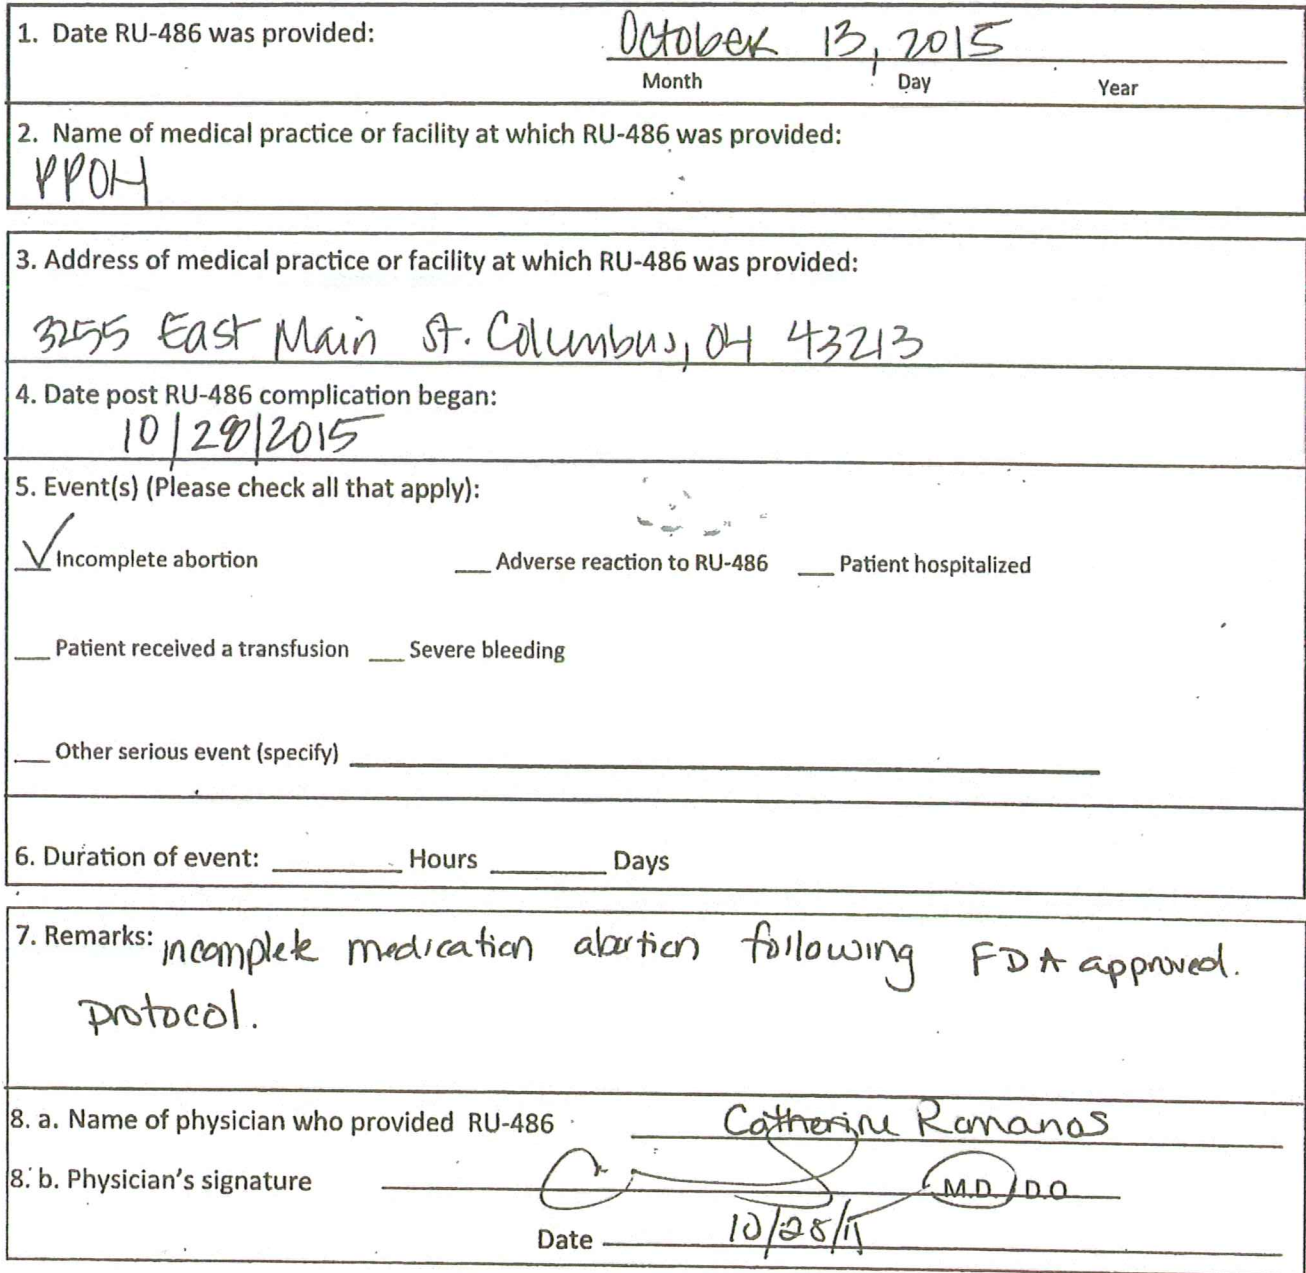 1. Date RU-486 was provided: October 13, 2015
Month Day Year
2. Name of medical practice or facility at which RU-486 was provided:
PPOH
3. Address of medical practice or facility at which RU-486 was provided:
3255 East Main St. Columbus, OH 43213
4. Date post RU-486 complication began:
10/28/2015
5. Event(s) (Please check all that apply):
✓ Incomplete abortion ___ Adverse reaction to RU-486 ___ Patient hospitalized
___ Patient received a transfusion ___ Severe bleeding
___ Other serious event (specify) ___
6. Duration of event: ___ Hours ___ Days
7. Remarks: incomplete medication abortion following FDA approved.
protocol.
8. a. Name of physician who provided RU-486 Catherine Romanos
8. b. Physician's signature M.D./D.O
Date 10/28/